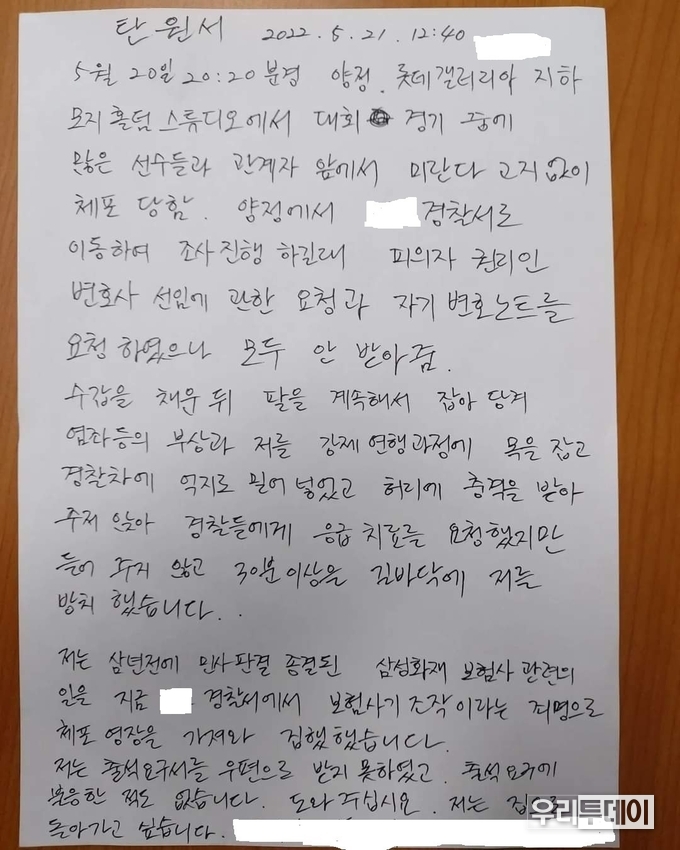 탄원서 2022.5.21.12:40
5월 20일 20:20분경 양정. 롯데갤러리아 지하
모지홀덤 스튜디오에서 대회 경기 중에
많은 선수들과 관계자 앞에서 미란다 고지없이
체포 당함. 양정에서 경찰서로
이동하여 조사진행 하길래 피의자 권리인
변호사 선임에 관한 요청과 자기변호노트를
요청 하였으나 모두 안 받아줌.
수갑을 채운 뒤 팔을 계속해서 잡아 당겨
염좌등의 부상과 저를 강제연행과정에 목을 잡고
경찰차에 억지로 밀어 넣었고 허리에 충격을 받아
주저 앉아 경찰들에게 응급치료를 요청했지만
들어 주지 않고 30분이상을 길바닥에 저를
방치 했습니다..
저는 삼년전에 민사판결 종결된 삼성화재 보험사 관련의
일을 지금 경찰서에서 보험사기조작이라는 죄명으로
체포 영장을 가져와 집행했습니다.
저는 출석요구서를 우편으로 받지 못하였고. 출석요구에
불응한 적도 없습니다. 도와주십시오. 저는 집으로
돌아가고 싶습니다.
우리투데이